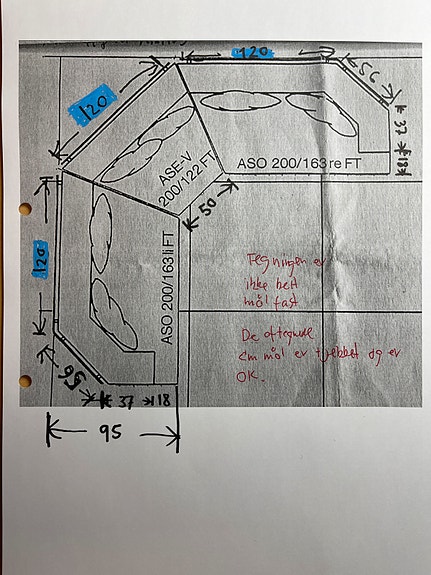 120
56
120
37
18
ASE-V
200/122 FT
ASO 200/163 re FT
50
120
ASO 200/163 li FT
Tegningen er
ikke helt
mål fast
De oftegnede
cm mål er tjekket og er
OK.
56
37
18
95